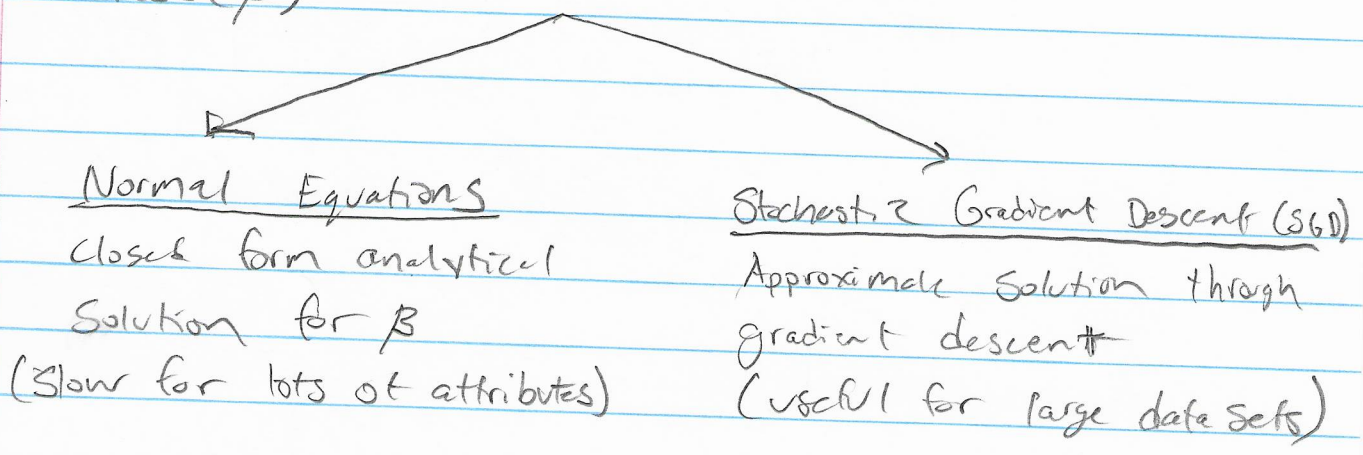 Normal Equations
Closed form analytical
Solution for β
(Slow for lots of attributes)
Stochastic Gradient Descent (SGD)
Approximate Solution through
gradient descent
(useful for large data sets)